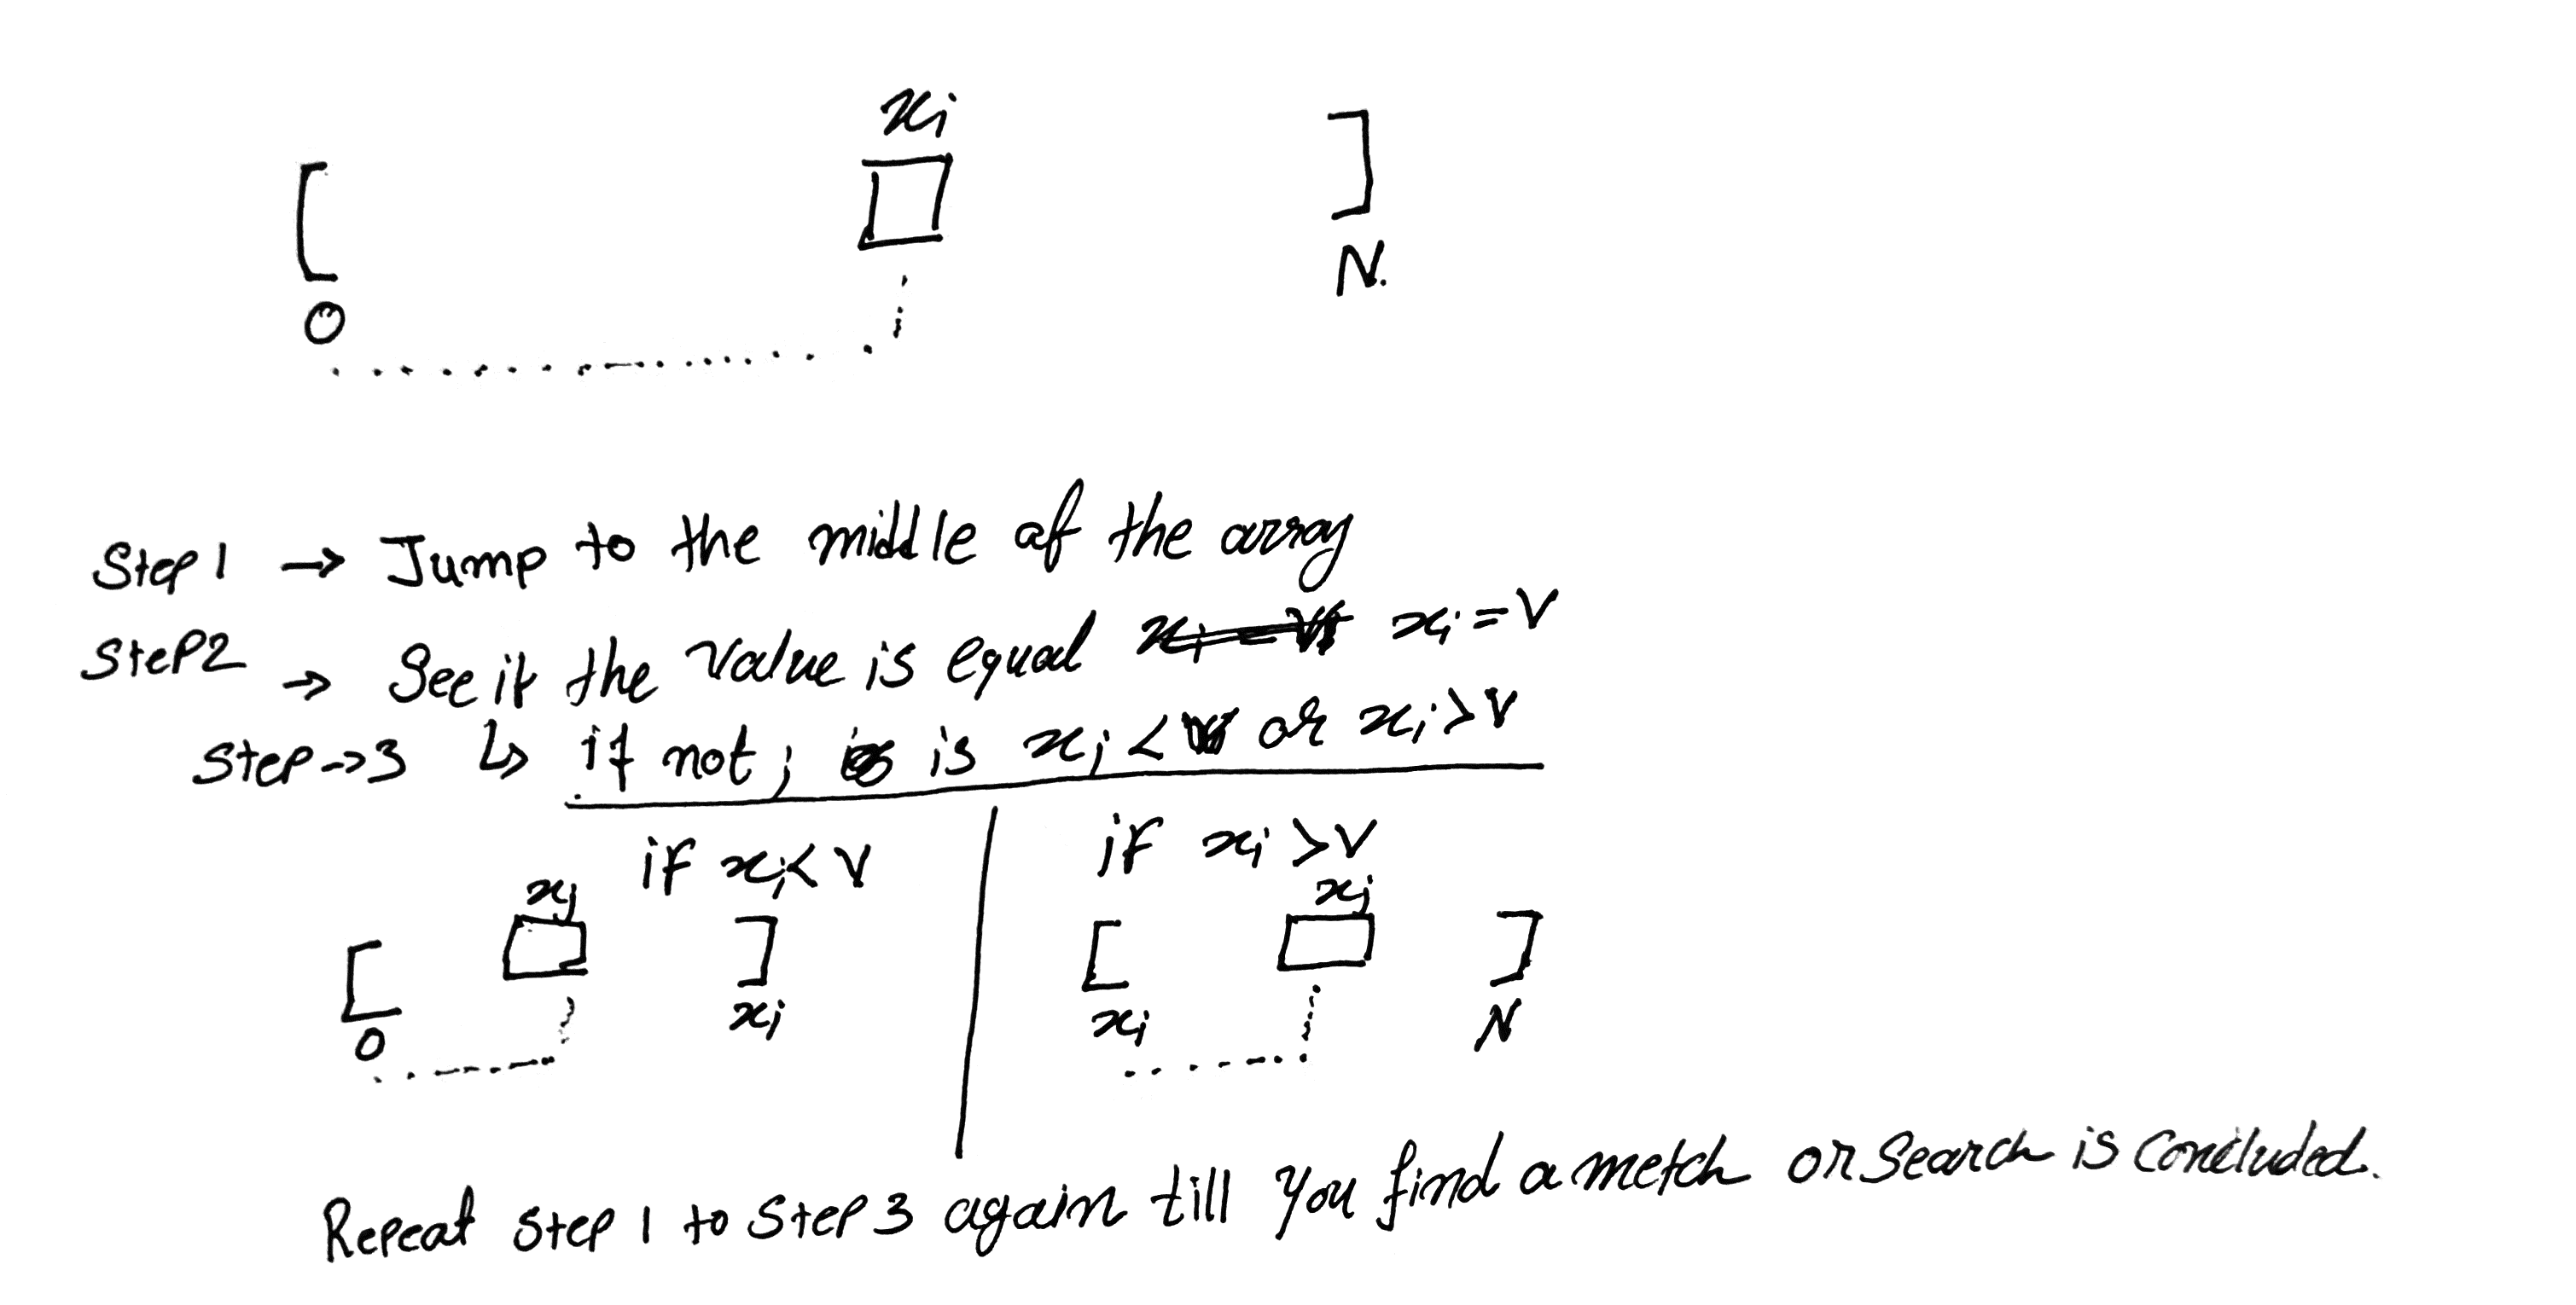 xi
[ ]
0 N.
Step 1 → Jump to the middle of the array
Step 2 → See if the value is equal xi = V
Step → 3 ↳ if not; is xi < V or xi > V
if xi < V
if xi > V
xj
xj
[ ]
[ ]
0 xi
xi N
Repeat Step 1 to Step 3 again till you find a metch or Search is Concluded.